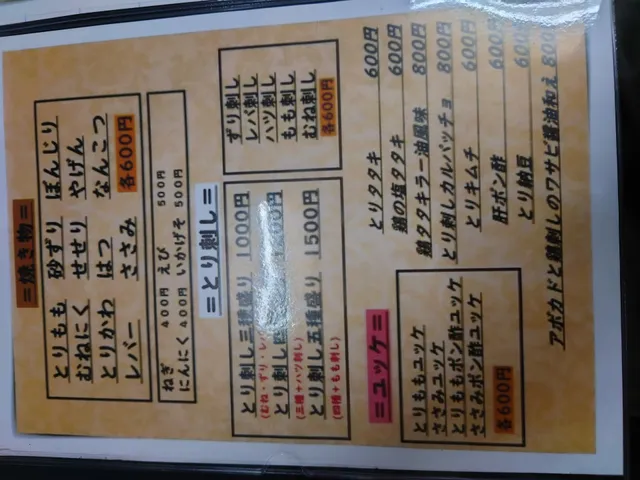 =焼き物=
とりもも 砂ずり ぼんじり
むねにく せせり やげん
とりかわ はつ なんこつ
レバー ささみ 各600円
ねぎ 400円 えび 500円
にんにく 400円 いかげそ 500円
=とり刺し=
とり刺し三種盛り 1000円
(むね・ずり・レバ
とり刺し四 00円
(三種+ハツ刺し)
とり刺し五種盛り 1500円
(四種+もも刺し)
ずり刺し
レバ刺し
ハツ刺し
もも刺し
むね刺し
各600円
=ユッケ=
とりももユッケ
ささみユッケ
とりももポン酢ユッケ
ささみポン酢ユッケ
各600円
とりタタキ 600円
鶏の塩タタキ 600円
鶏タタキラー油風味 800円
とり刺しカルパッチョ 800円
とりキムチ 600円
肝ポン酢 600円
とり納豆 600
アボカドと鶏刺しのワサビ醤油和え 800